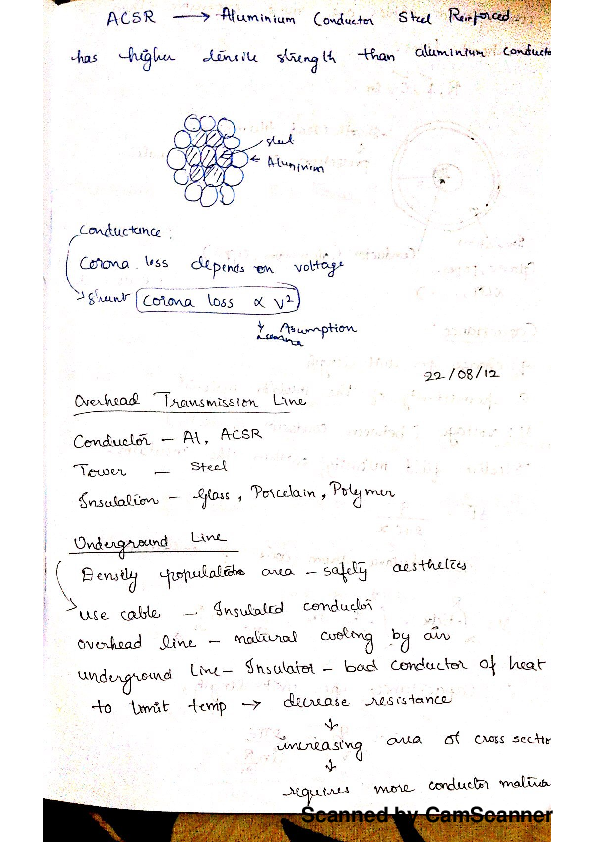 ACSR → Aluminium Conductor Steel Reinforced.
has higher tensile strength than aluminium conducto
steel
Aluminium
Conductance :
Corona loss depends on voltage
Shunt Corona loss ∝ V²
Asumption
22/08/12
Overhead Transmission Line
Conductor – Al, ACSR
Tower – Steel
Insulation – Glass, Porcelain, Polymer
Underground Line
Densily population area – safety aesthetics
use cable – Insulated conductor
overhead line – natural cooling by air
underground Line – Insulator – bad conductor of heat
to limit temp → decrease resistance
↓
increasing area of cross sectio
↓
requires more conductor materia
Scanned by CamScanner